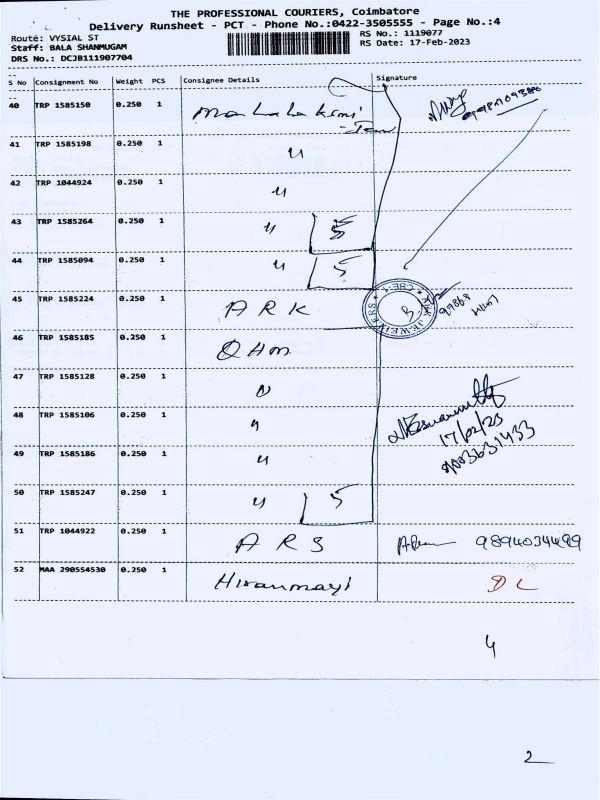 THE PROFESSIONAL COURIERS, Coimbatore
Delivery Runsheet - PCT - Phone No.:0422-3505555 - Page No.:4
Route: VYSIAL ST
Staff: BALA SHANMUGAM
DRS No.: DCJB111907704
RS No.: 1119077
RS Date: 17-Feb-2023
S No Consignment No Weight PCS Consignee Details Signature
40 TRP 1585150 0.250 1 Mahalaksmi
41 TRP 1585198 0.250 1 "
42 TRP 1044924 0.250 1 "
43 TRP 1585264 0.250 1 " 5
44 TRP 1585094 0.250 1 " 5
45 TRP 1585224 0.250 1 ARK
46 TRP 1585185 0.250 1
47 TRP 1585128 0.250 1 "
48 TRP 1585106 0.250 1 "
17/02/23
49 TRP 1585186 0.250 1 "
50 TRP 1585247 0.250 1 " 5
51 TRP 1044922 0.250 1 ARS
52 MAA 290554530 0.250 1 Hiranmayi DL
4
2